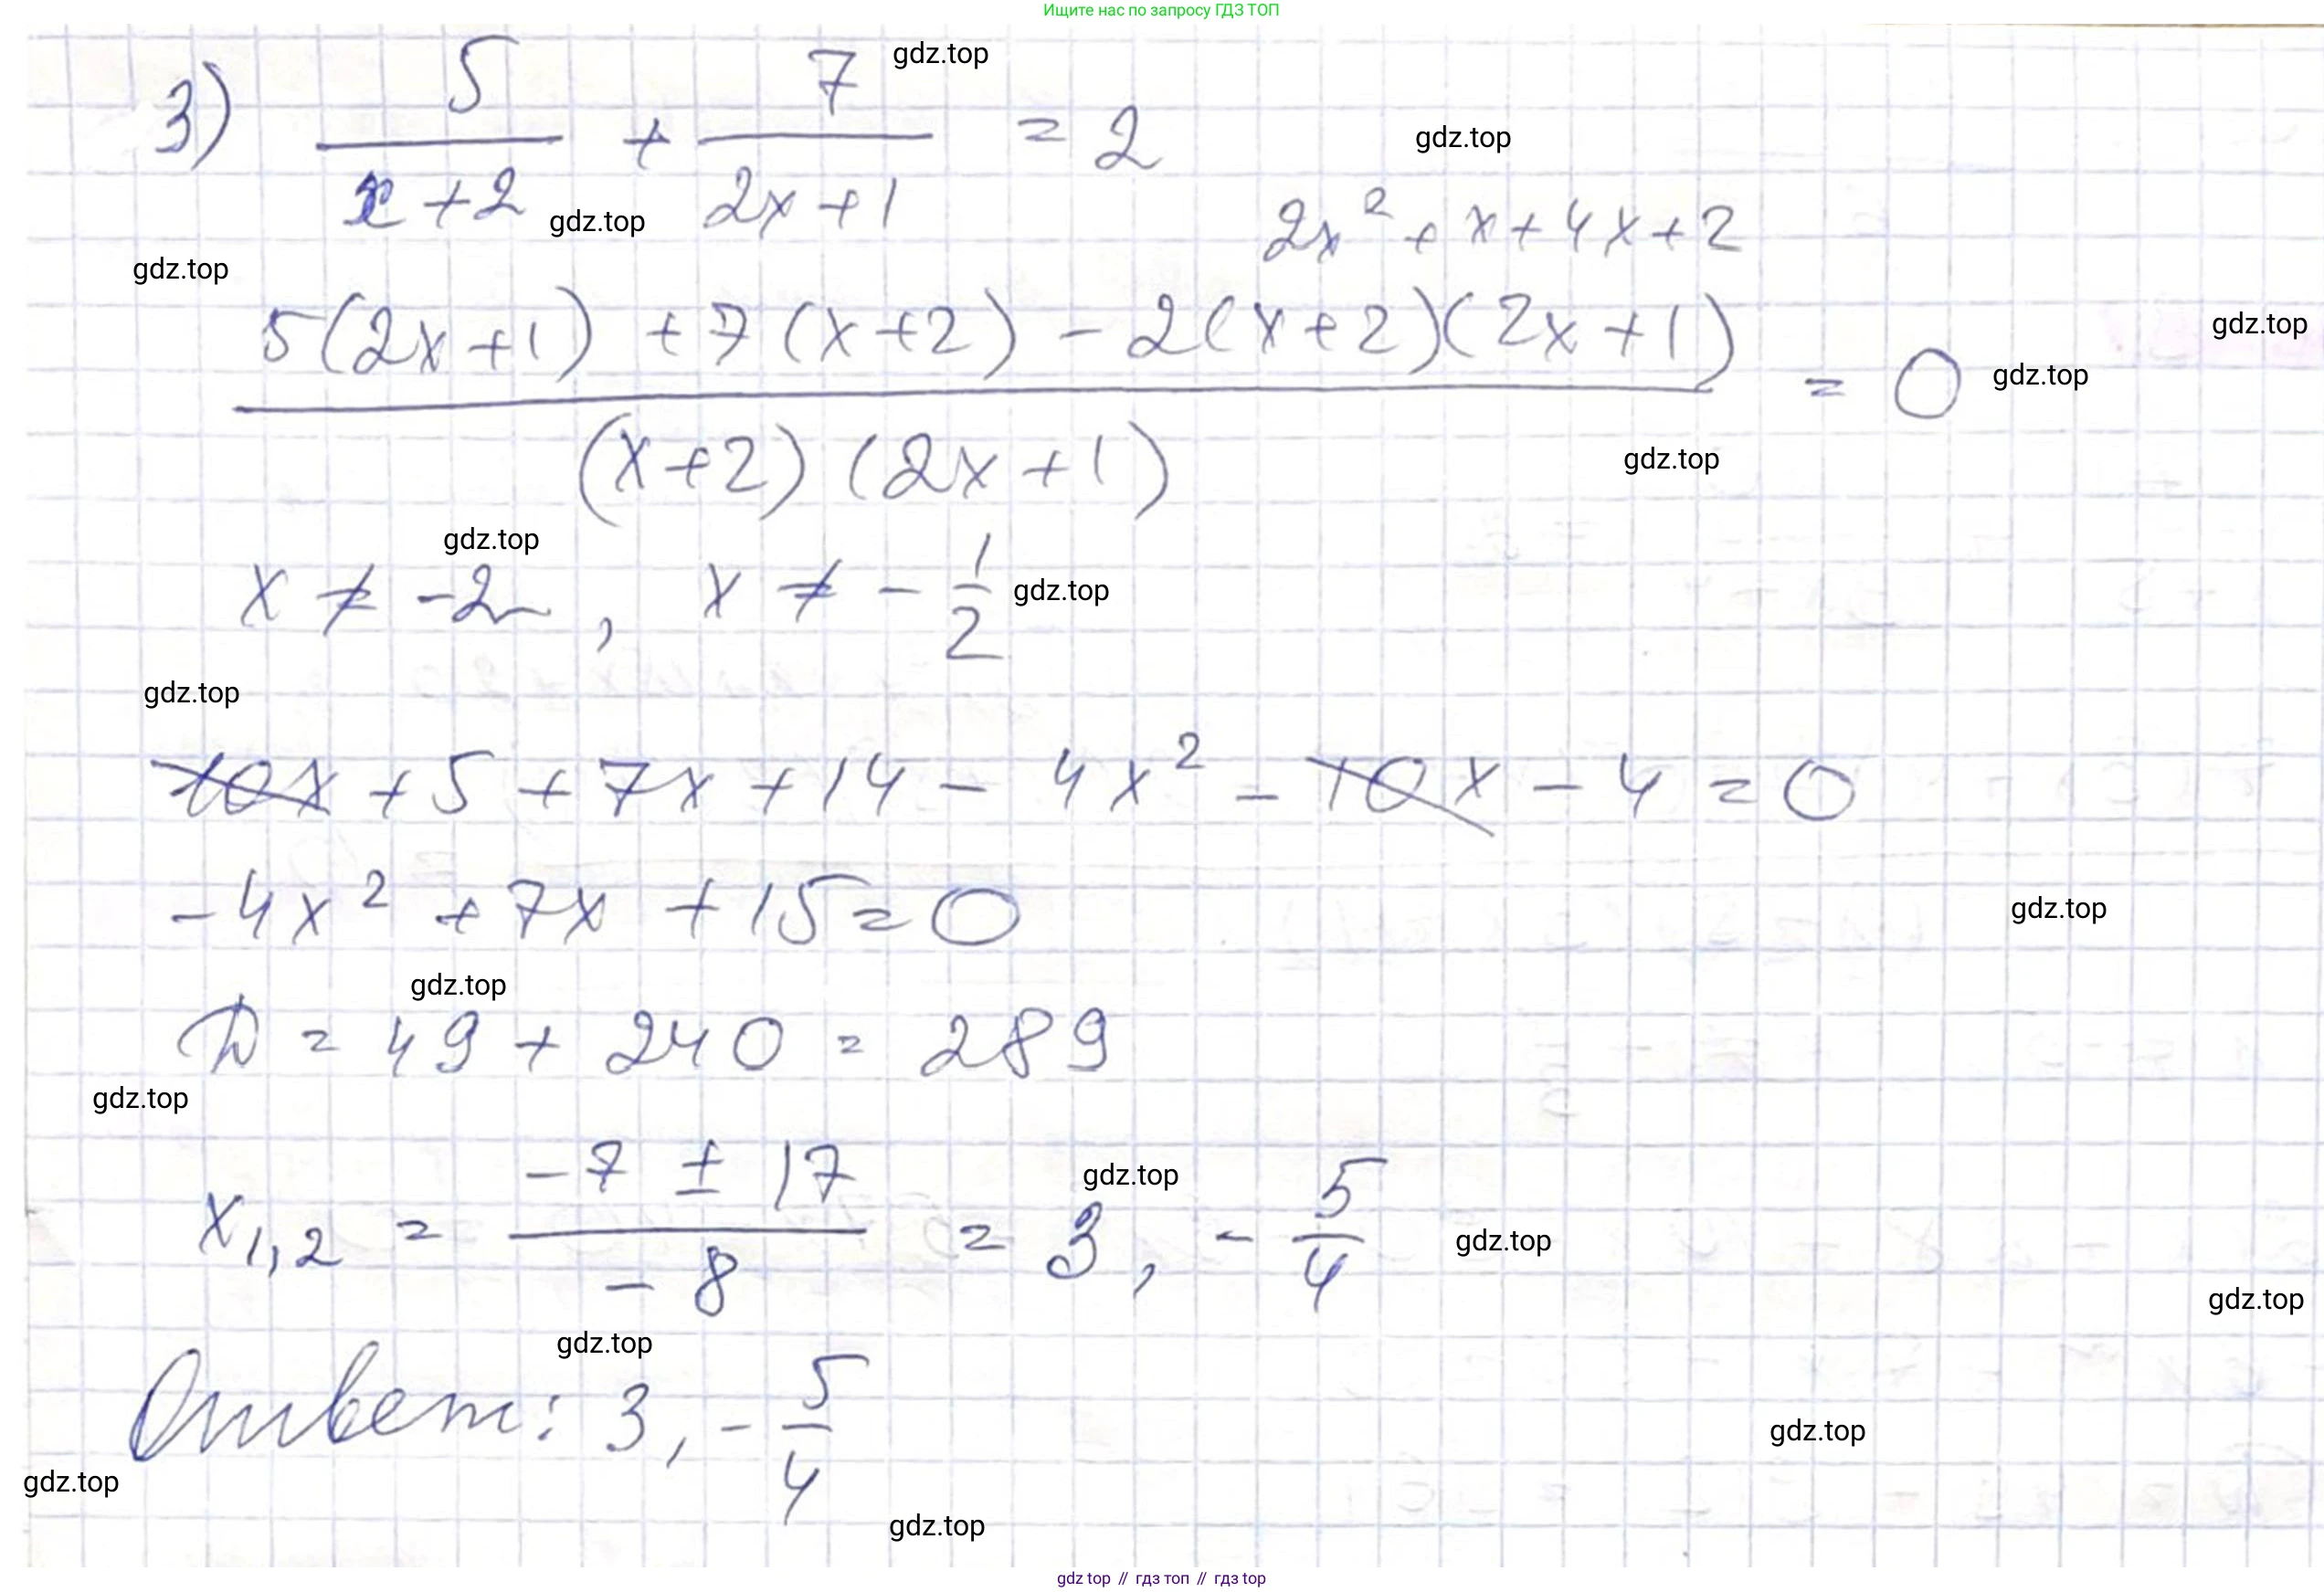 Ищите нас по запросу ГДЗ ТОП
3) 5/(x+2) + 7/(2x+1) = 2
gdz.top
gdz.top
gdz.top
2x² + x + 4x + 2
gdz.top
(5(2x+1) + 7(x+2) - 2(x+2)(2x+1))/((x+2)(2x+1)) = 0
gdz.top
gdz.top
gdz.top
gdz.top
x ≠ -2, x ≠ - 1/2
gdz.top
gdz.top
10x + 5 + 7x + 14 - 4x² - 10x - 4 = 0
-4x² + 7x + 15 = 0
gdz.top
gdz.top
D = 49 + 240 = 289
gdz.top
x1,2 = (-7 ± 17)/(-8) = 3, - 5/4
gdz.top
gdz.top
gdz.top
gdz.top
Ответ: 3, - 5/4
gdz.top
gdz.top
gdz.top
gdz top // гдз топ // гдз top